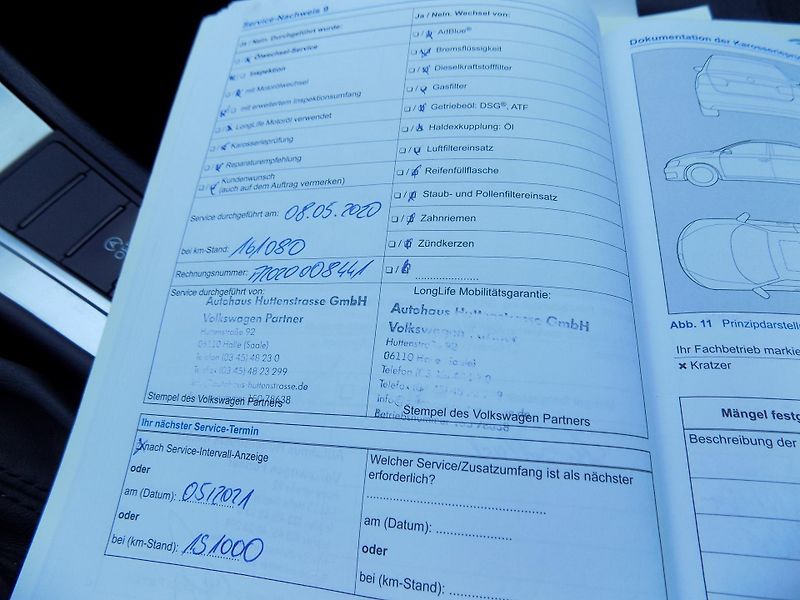 Service-Nachweis 9
Ja / Nein. Durchgeführt wurde:
Ölwechsel-Service
Inspektion
mit Motorölwechsel
mit erweitertem Inspektionsumfang
LongLife Motoröl verwendet
Karosserieprüfung
Reparaturempfehlung
Kundenwunsch
(auch auf dem Auftrag vermerken)
Service durchgeführt am: 08.05.2020
bei km-Stand: 161080
Rechnungsnummer:
Service durchgeführt von:
Autohaus Huttenstrasse GmbH
Volkswagen Partner
Huttenstraße 92
06110 Halle (Saale)
Telefon (03 45) 48 23 0
Telefax (03 45) 48 23 299
info@autohaus-huttenstrasse.de
Stempel des Volkswagen Partners
Ja / Nein. Wechsel von:
AdBlue®
Bremsflüssigkeit
Dieselkraftstofffilter
Gasfilter
Getriebeöl: DSG®, ATF
Haldexkupplung: Öl
Luftfiltereinsatz
Reifenfüllflasche
Staub- und Pollenfiltereinsatz
Zahnriemen
Zündkerzen
LongLife Mobilitätsgarantie:
Autohaus Huttenstrasse GmbH
Volkswagen Partner
Huttenstraße 92
06110 Halle (Saale)
Telefon
Stempel des Volkswagen Partners
Ihr nächster Service-Termin
nach Service-Intervall-Anzeige
oder
am (Datum): 05/2021
oder
bei (km-Stand): 191000
Welcher Service/Zusatzumfang ist als nächster
erforderlich?
am (Datum):
oder
bei (km-Stand):
Dokumentation der
Abb. 11 Prinzipdarstell
Ihr Fachbetrieb markie
× Kratzer
Mängel festg
Beschreibung der